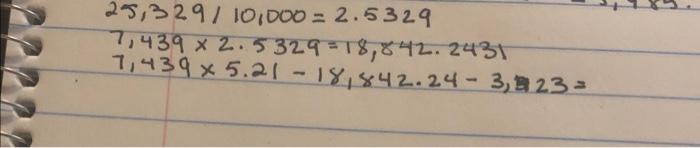 25,329 / 10,000 = 2.5329
7,439 x 2.5329 = 18,842.2431
7,439 x 5.21 - 18,842.24 - 3, 23 =